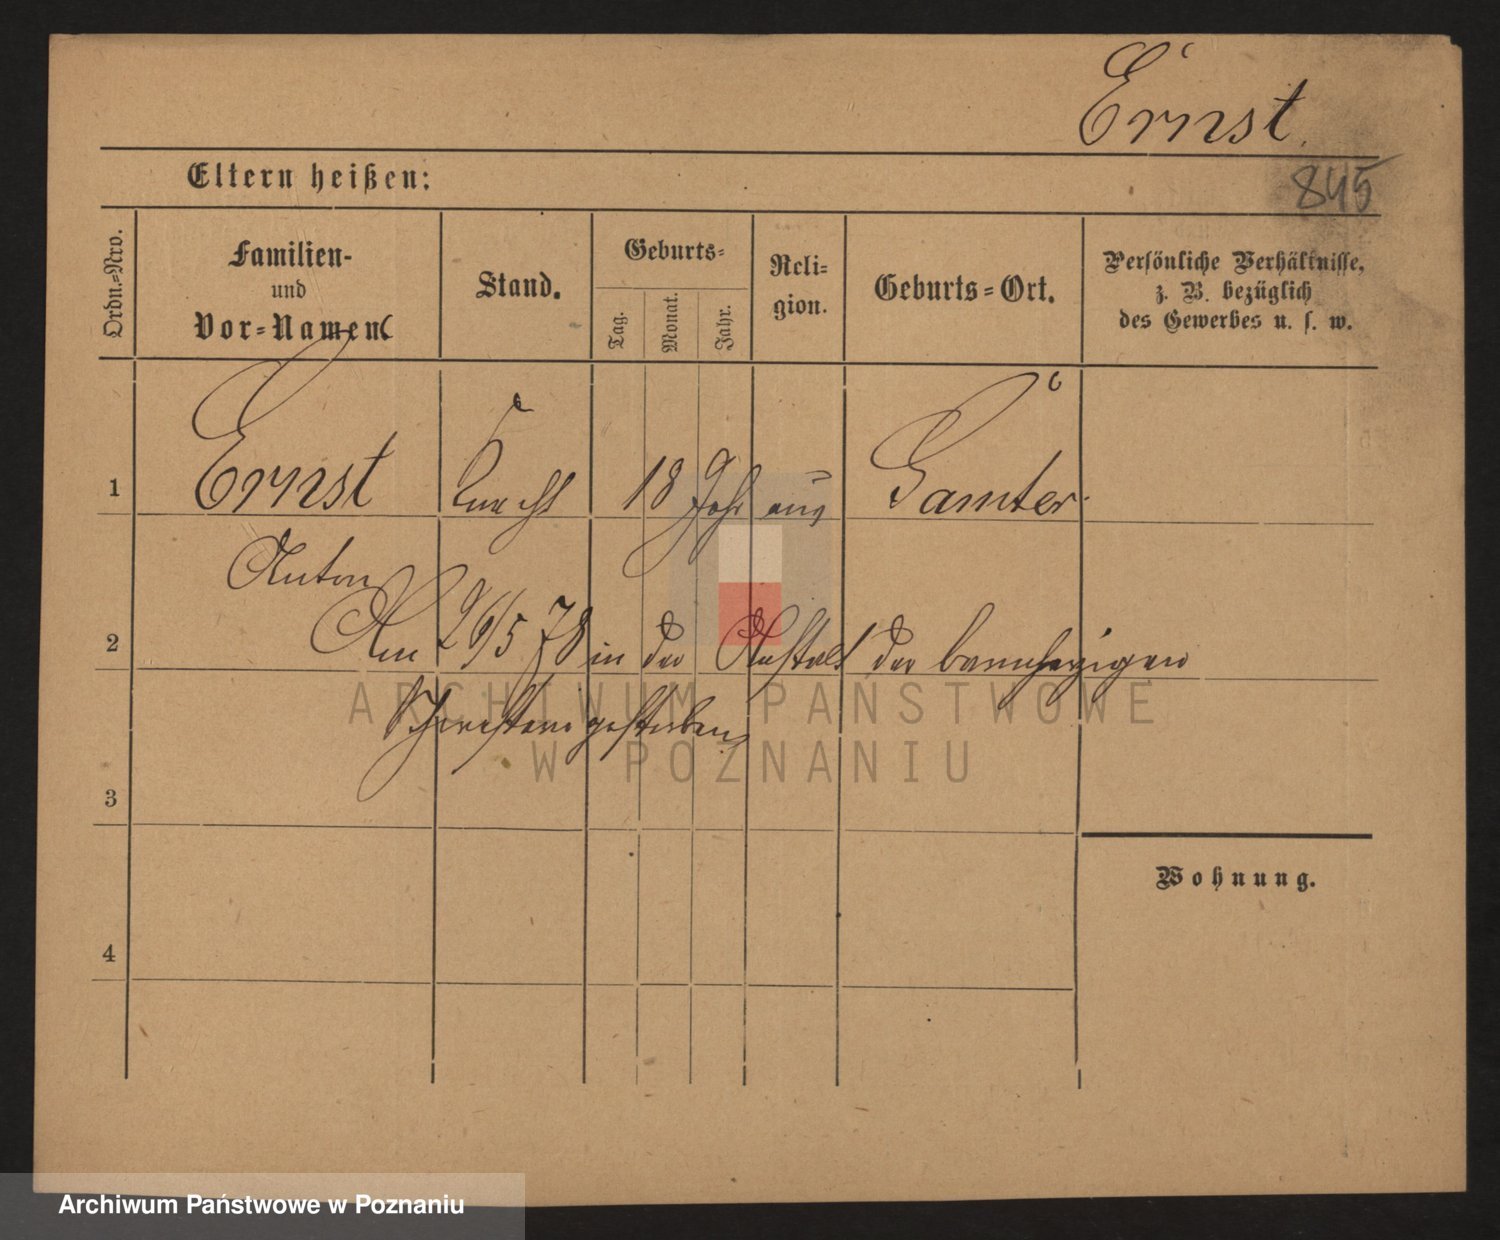 Ernst.
845
Eltern heißen:
Ordn.-Nro.
Familien-
und
Vor-Namen
Stand.
Geburts-
Tag.
Monat.
Jahr.
Reli-
gion.
Geburts-Ort.
Persönliche Verhältnisse,
z. B. bezüglich
des Gewerbes u. s. w.
1 Ernst Knecht 18 Jahr aus Samter
Anton
2 Am 26/5 78 in der Anstalt der barmherzigen
Schwestern gestorben
3
4
Wohnung.
ARCHIWUM PAŃSTWOWE
W POZNANIU
Archiwum Państwowe w Poznaniu